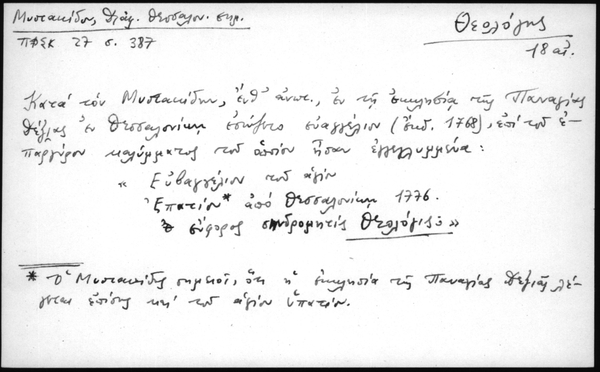 Μυστακίδου, Διάφ. Θεσσαλον. σημ.
ΠΦΣΚ 27 σ. 387
Θεολόγης
18 αἰ.
Κατά τόν Μυστακίδην, ἔνθ' ἀνωτ., ἐν τῇ ἐκκλησίᾳ τῆς Παναγίας
Δεξιᾶς ἐν Θεσσαλονίκῃ ἐσώζετο εὐαγγέλιον (ἐκδ. 1768), ἐπί τοῦ ἐ-
παργύρου καλύμματος τοῦ ὁποίου ἦσαν ἐγγεγλυμμένα:
« Εὐβαγγέλιον τοῦ ἁγίου
Ἐπατίου* ἀπό Θεσαλονίκη 1776.
ὁ εὔφορος συνδρομητίς Θεολόγις: »
* Ὁ Μυστακίδης σημειοῖ, ὅτι ἡ ἐκκλησία τῆς Παναγίας Δεξιᾶς λέ-
γεται ἐπίσης καί τοῦ ἁγίου Ὑπατίου.